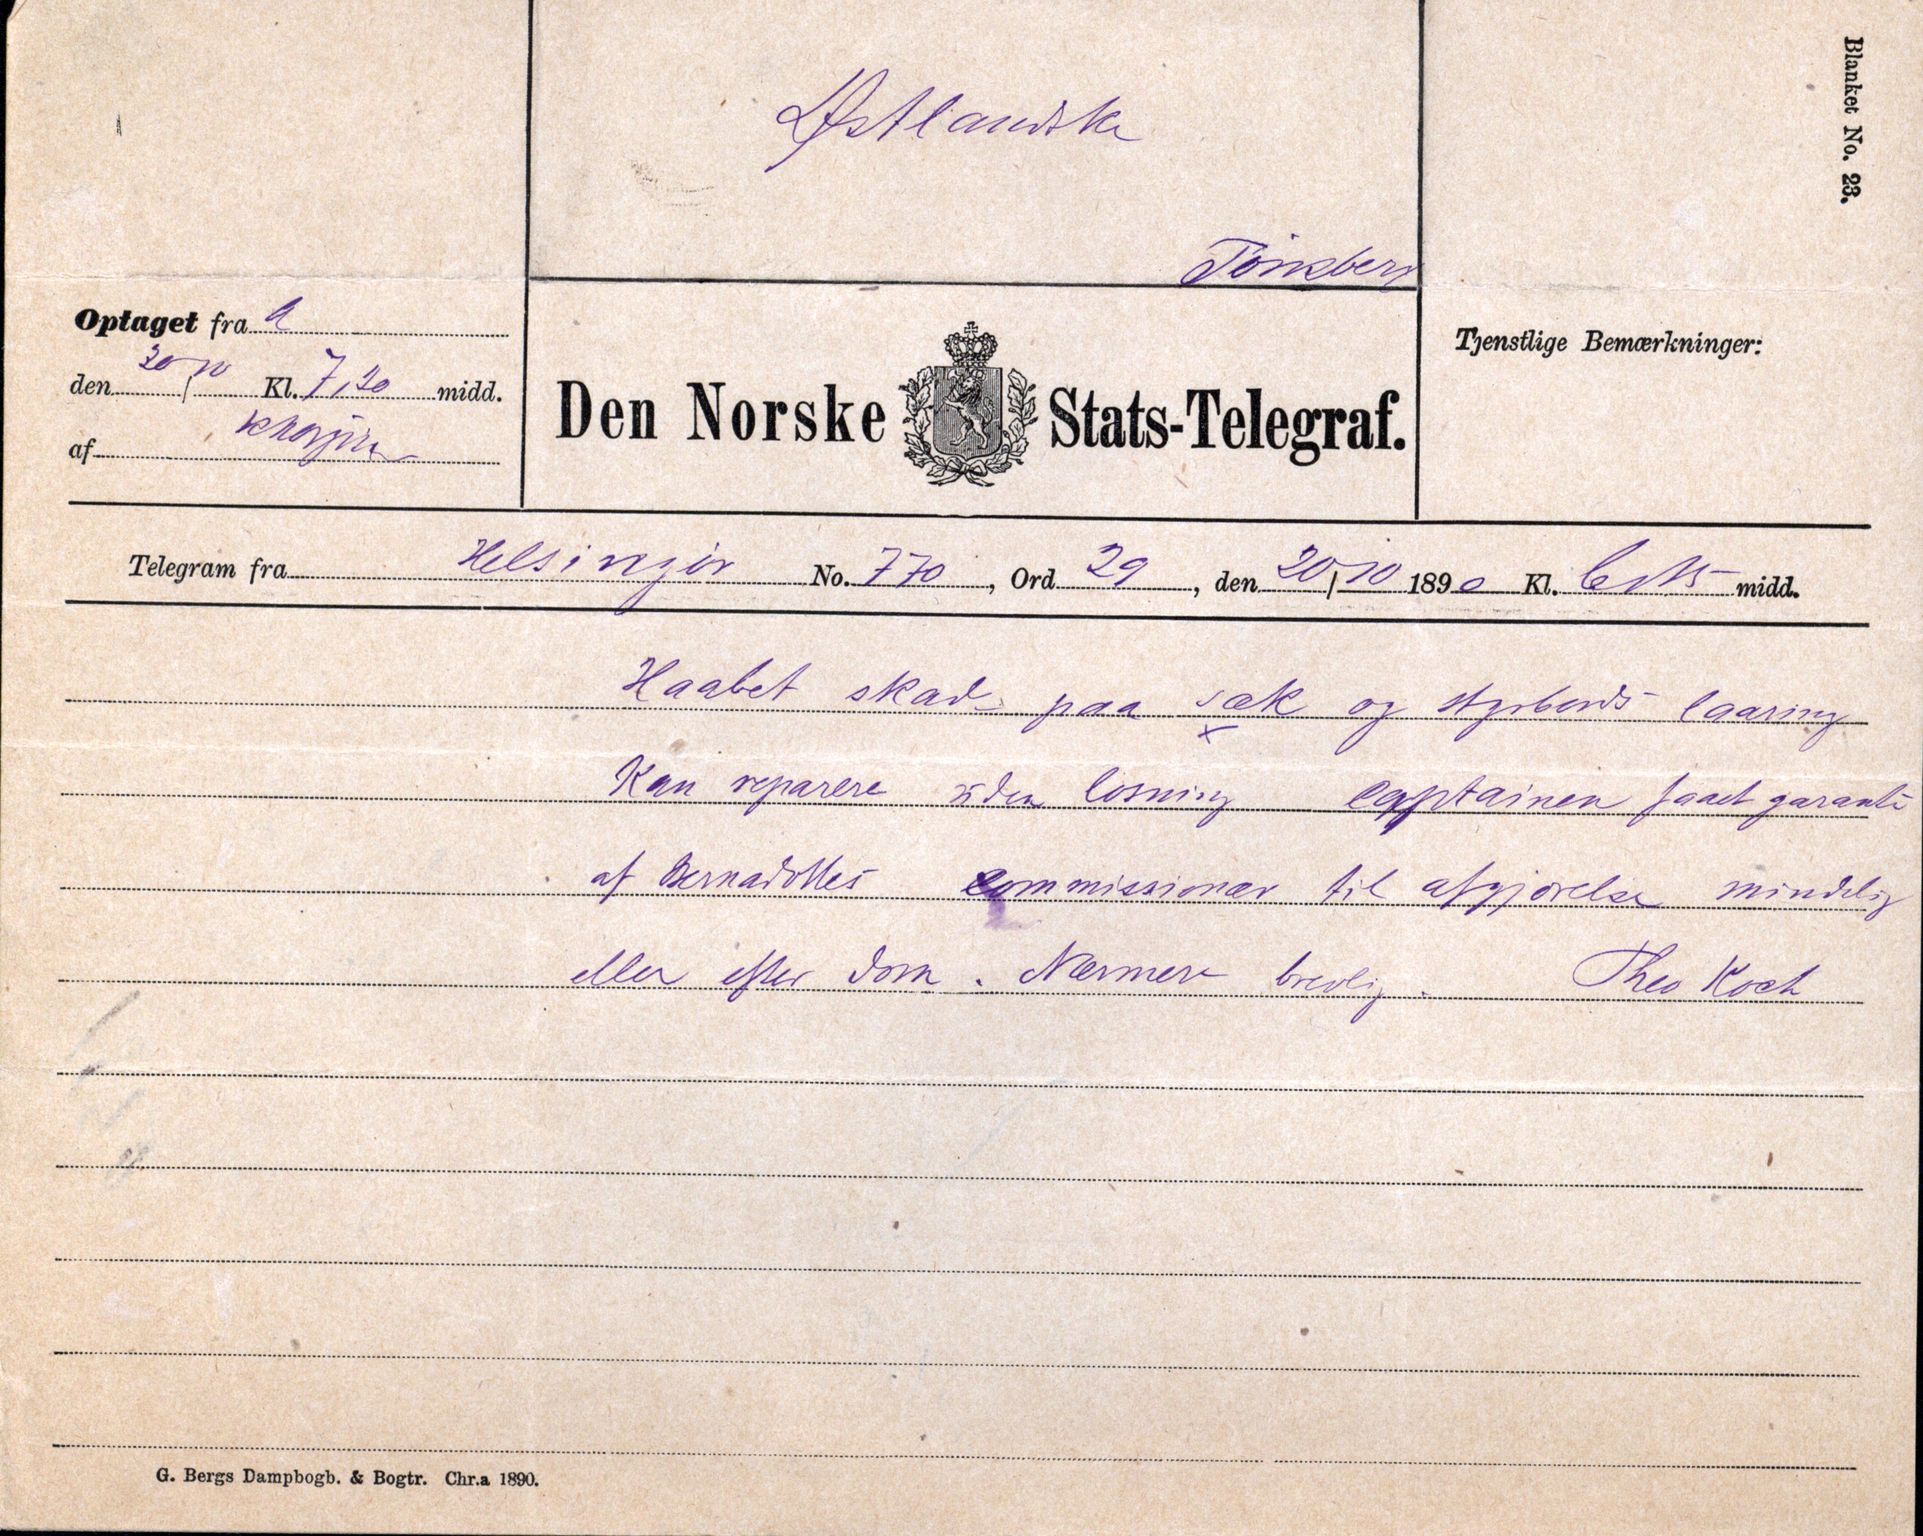 Blanket No. 23.
Østlandske
Tönsberg
Optaget fra a
den 20/10 Kl. 7,20 midd.
af
Den Norske Stats-Telegraf.
Tjenstlige Bemærkninger:
Telegram fra Helsingør No. 770, Ord 29, den 20/10 1890 Kl. 6,15 midd.
Haabet skad paa sæk og styrbords laaring
Kan reparere uden losning captainen faaet garanti
af Bernadottes commissionær til afgjörelse mindelig
eller efter dom. Nærmere brevlig. Theo Koch
G. Bergs Dampbogb. & Bogtr. Chr.a 1890.